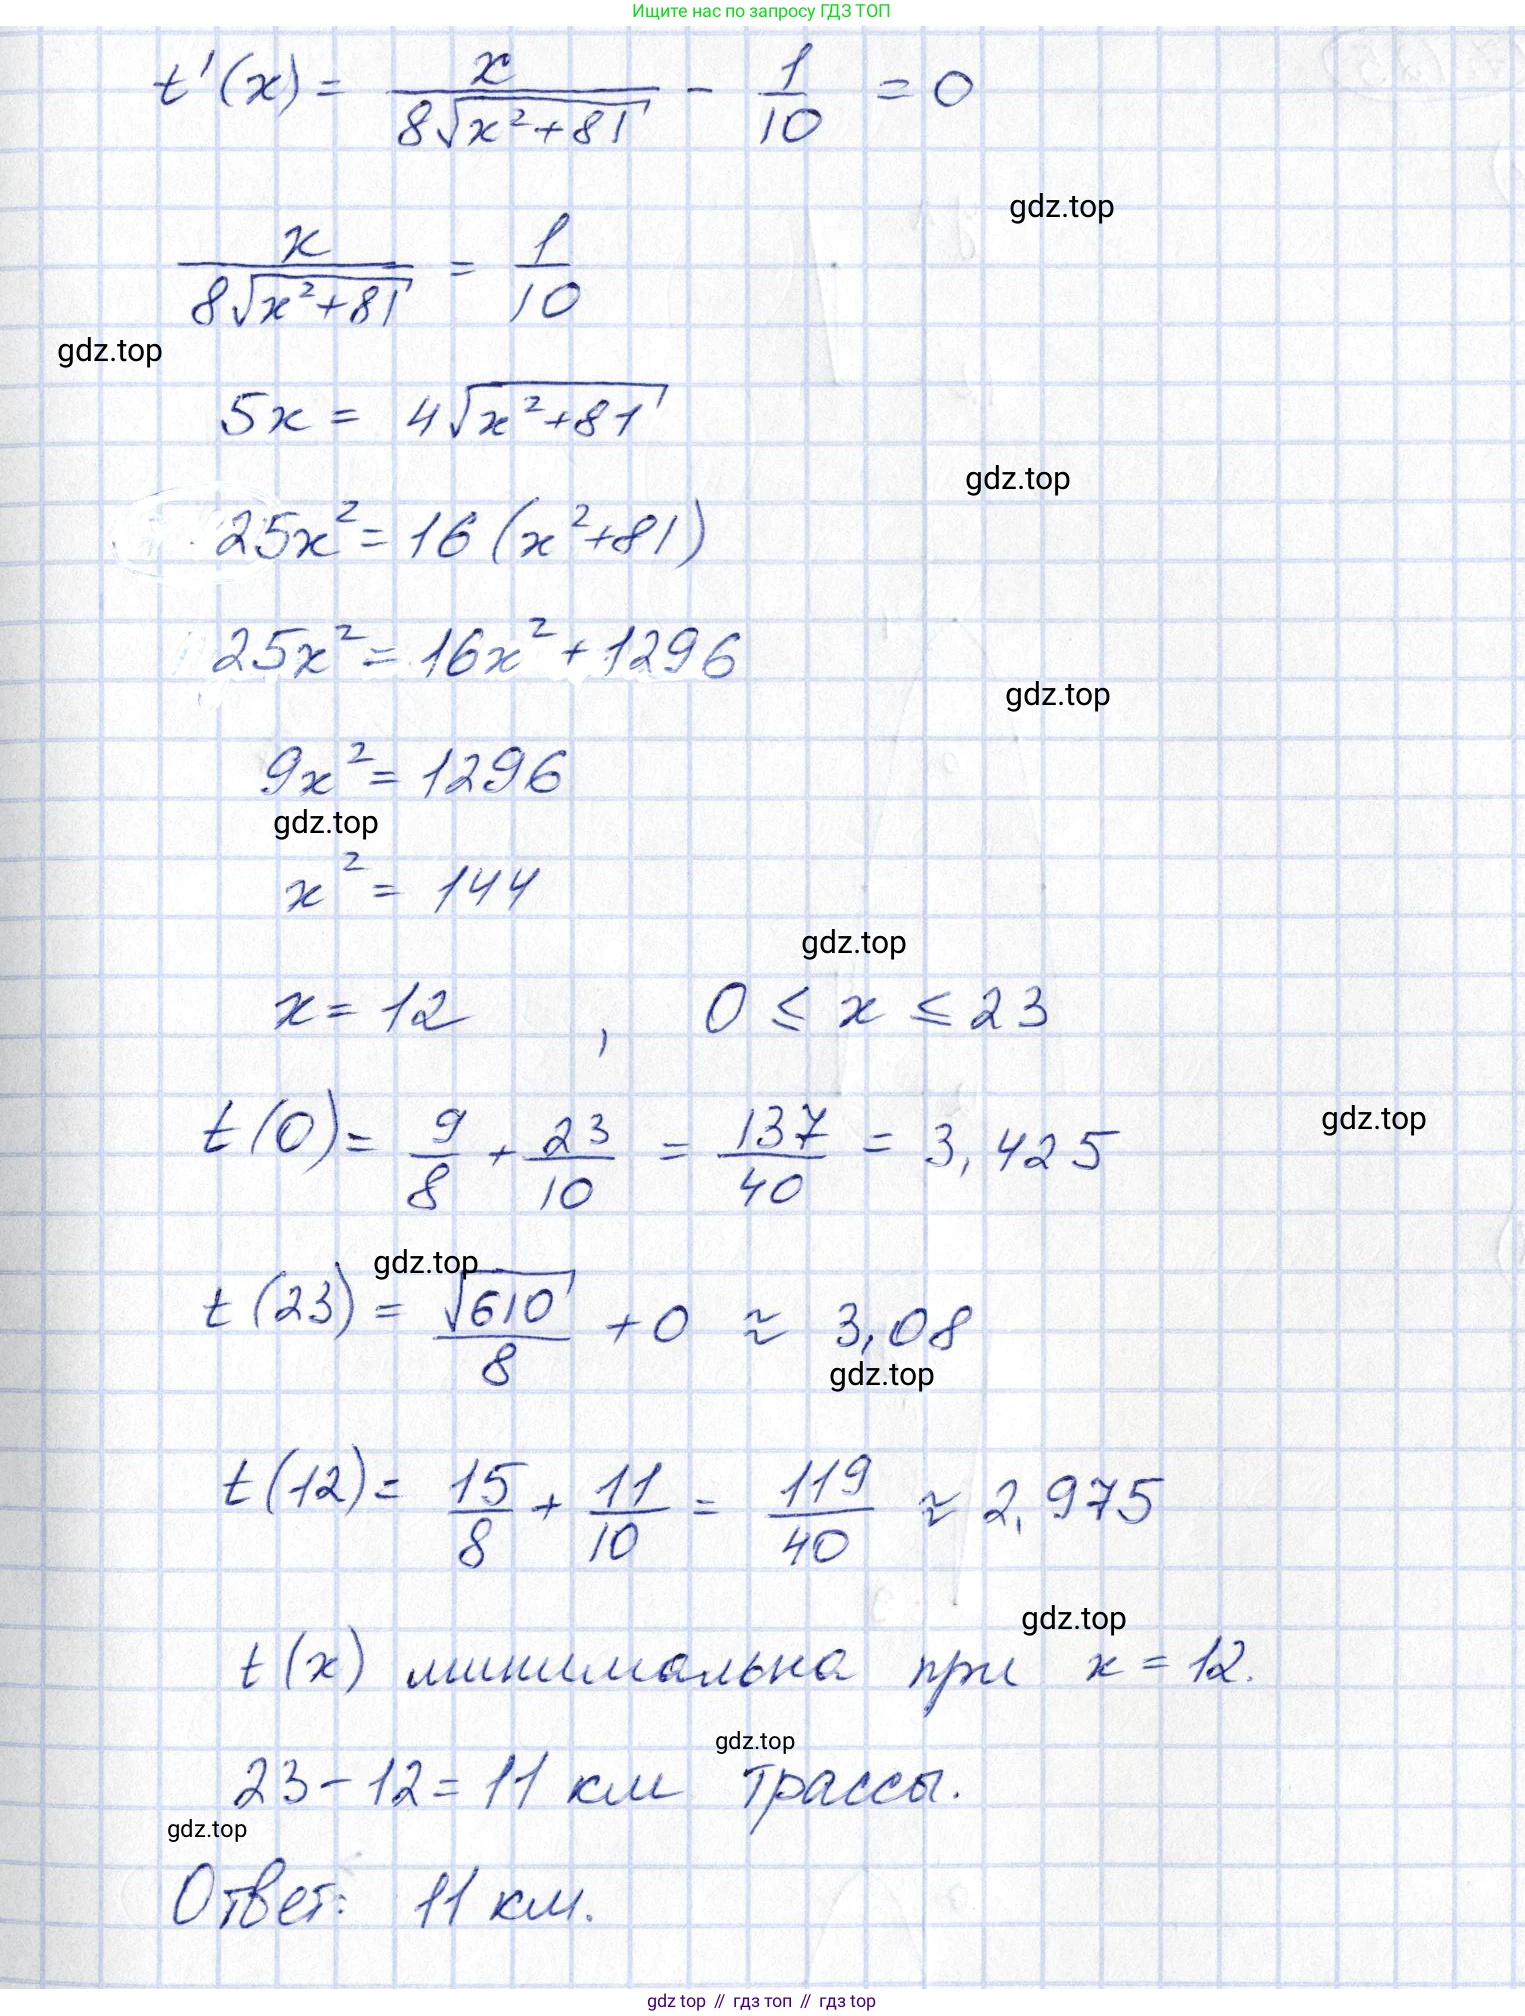 Ищите нас по запросу ГДЗ ТОП
t'(x) = x / 8√(x²+81) - 1/10 = 0
gdz.top
x / 8√(x²+81) = 1/10
gdz.top
5x = 4√(x²+81)
gdz.top
25x² = 16(x²+81)
25x² = 16x² + 1296
gdz.top
9x² = 1296
gdz.top
x² = 144
gdz.top
x = 12 , 0 ≤ x ≤ 23
t(0) = 9/8 + 23/10 = 137/40 = 3,425
gdz.top
gdz.top
t(23) = √610/8 + 0 ≈ 3,08
gdz.top
t(12) = 15/8 + 11/10 = 119/40 ≈ 2,975
gdz.top
t(x) минимальна при x = 12.
gdz.top
23 - 12 = 11 км трассы.
gdz.top
Ответ: 11 км.
gdz top // гдз топ // гдз top